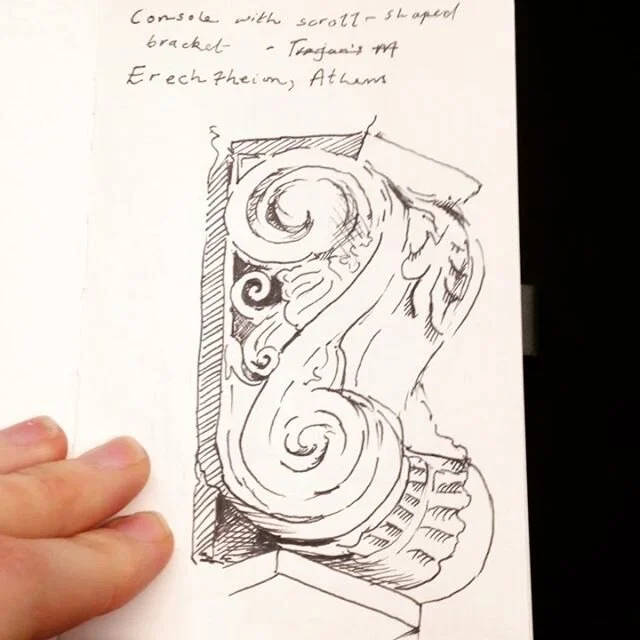 Console with scroll-shaped
bracket - Trajan's M
Erechtheion, Athens